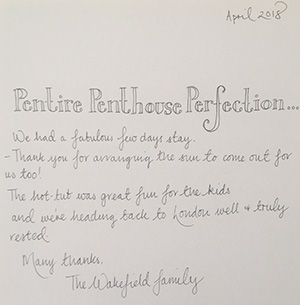 April 2018
Pentire Penthouse Perfection...
We had a fabulous few days stay.
- Thank you for arranging the sun to come out for
us too!
The hot-tub was great fun for the kids
and we're heading back to London well & truly
rested.
Many thanks,
The Wakefield family